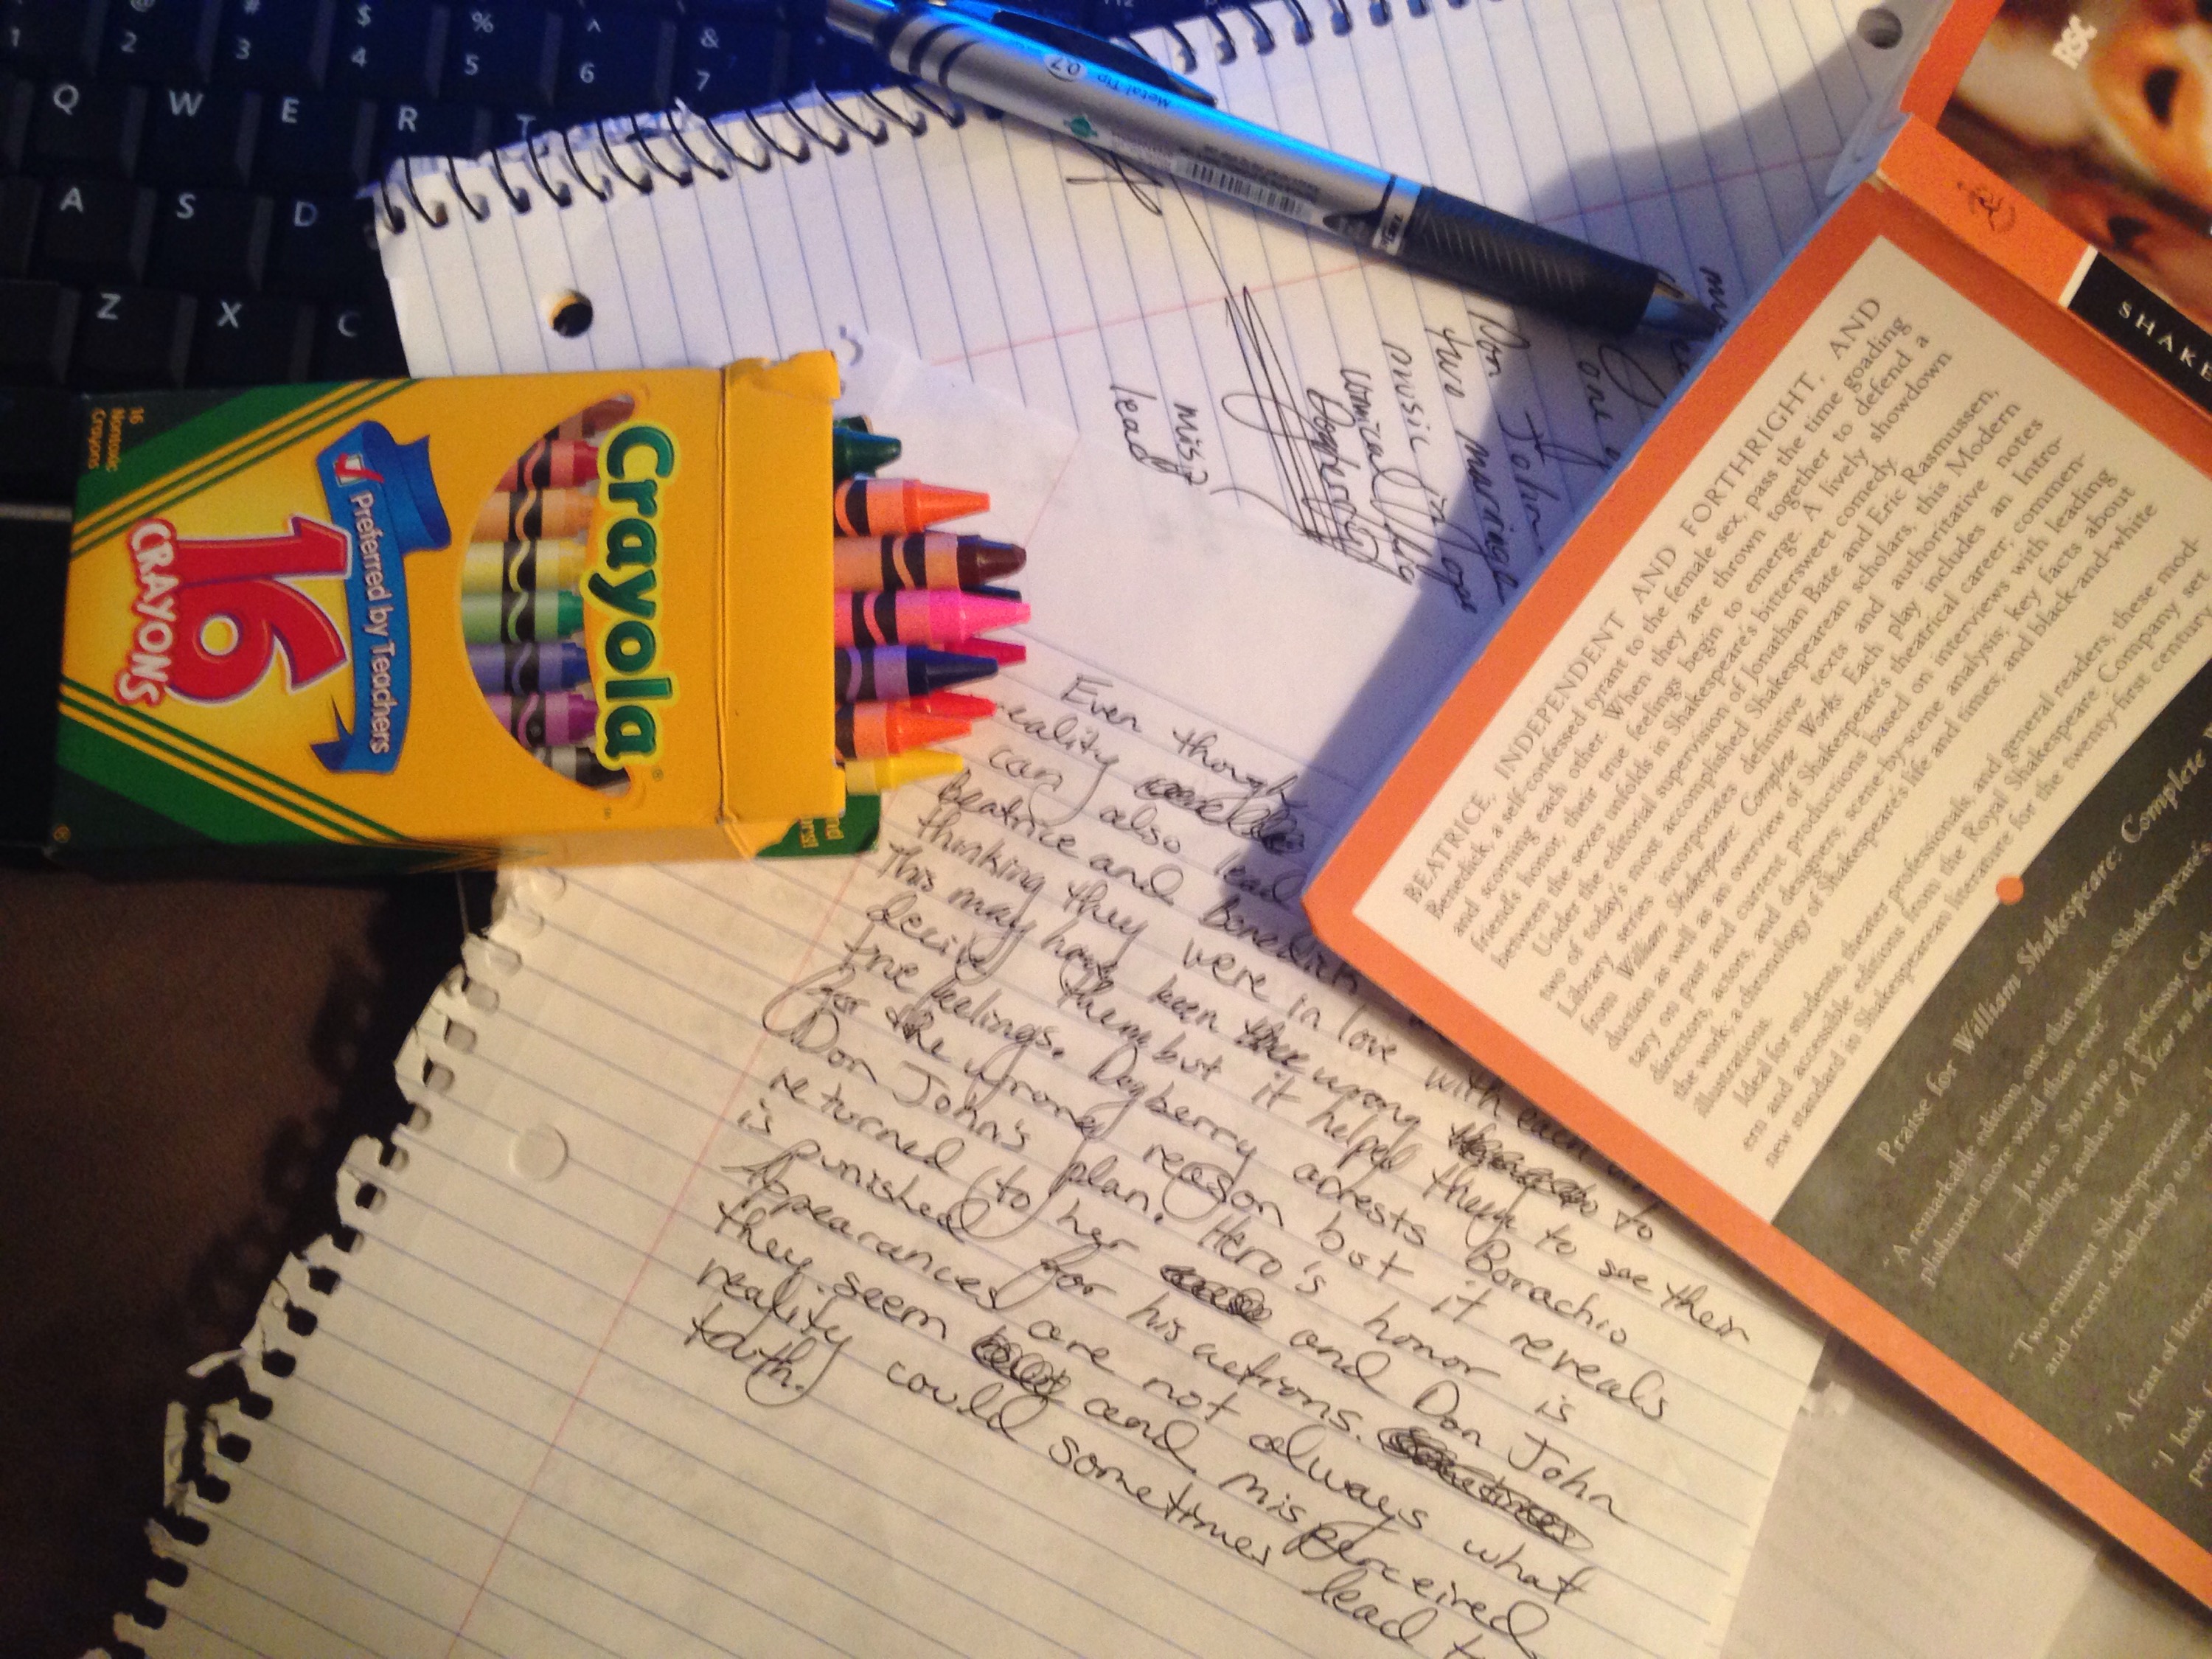 ! @ # $ % ^ &
1 2 3 4 5 6 7
Q W E R T
A S D
Z X C
Metal Tip 0.7
RSC
SHAKE
Crayola
Preferred by Teachers
16
CRAYONS
16
Nontoxic
Crayons
one
Don John
two marriage
music
comical
Dogberry
mis?
lead
Even though
reality
can also lead
Beatrice and Benedick
thinking they were in love with each
This may have been the wrong to
decite them but it helped them to see their
true feelings. Dogberry arrests Borachio
for the wrong reason but it reveals
Don John's plan. Hero's honor is
returned to her and Don John
is punished for his actions. sometimes
Appearances are not always what
they seem and misperceived
reality could sometimes lead t
truth.
BEATRICE, INDEPENDENT AND FORTHRIGHT, AND
Benedick, a self-confessed tyrant to the female sex, pass the time goading
and scorning each other. When they are thrown together to defend a
friend's honor, their true feelings begin to emerge. A lively showdown
between the sexes unfolds in Shakespeare's bittersweet comedy.
Under the editorial supervision of Jonathan Bate and Eric Rasmussen,
two of today's most accomplished Shakespearean scholars, this Modern
Library series incorporates definitive texts and authoritative notes
from William Shakespeare: Complete Works. Each play includes an Intro-
duction as well as an overview of Shakespeare's theatrical career; commen-
tary on past and current productions based on interviews with leading
directors, actors, and designers; scene-by-scene analysis; key facts about
the work; a chronology of Shakespeare's life and times; and black-and-white
illustrations.
Ideal for students, theater professionals, and general readers, these mod-
ern and accessible editions from the Royal Shakespeare Company set
new standard in Shakespearean literature for the twenty-first century
Praise for William Shakespeare: Complete W
"A remarkable edition, one that makes Shakespeare's
plishment more vivid than ever."
JAMES SHAPIRO, professor, Co
bestselling author of A Year in the
"Two eminent Shakespeareans
and recent scholarship to
"A feast of literary
"I look